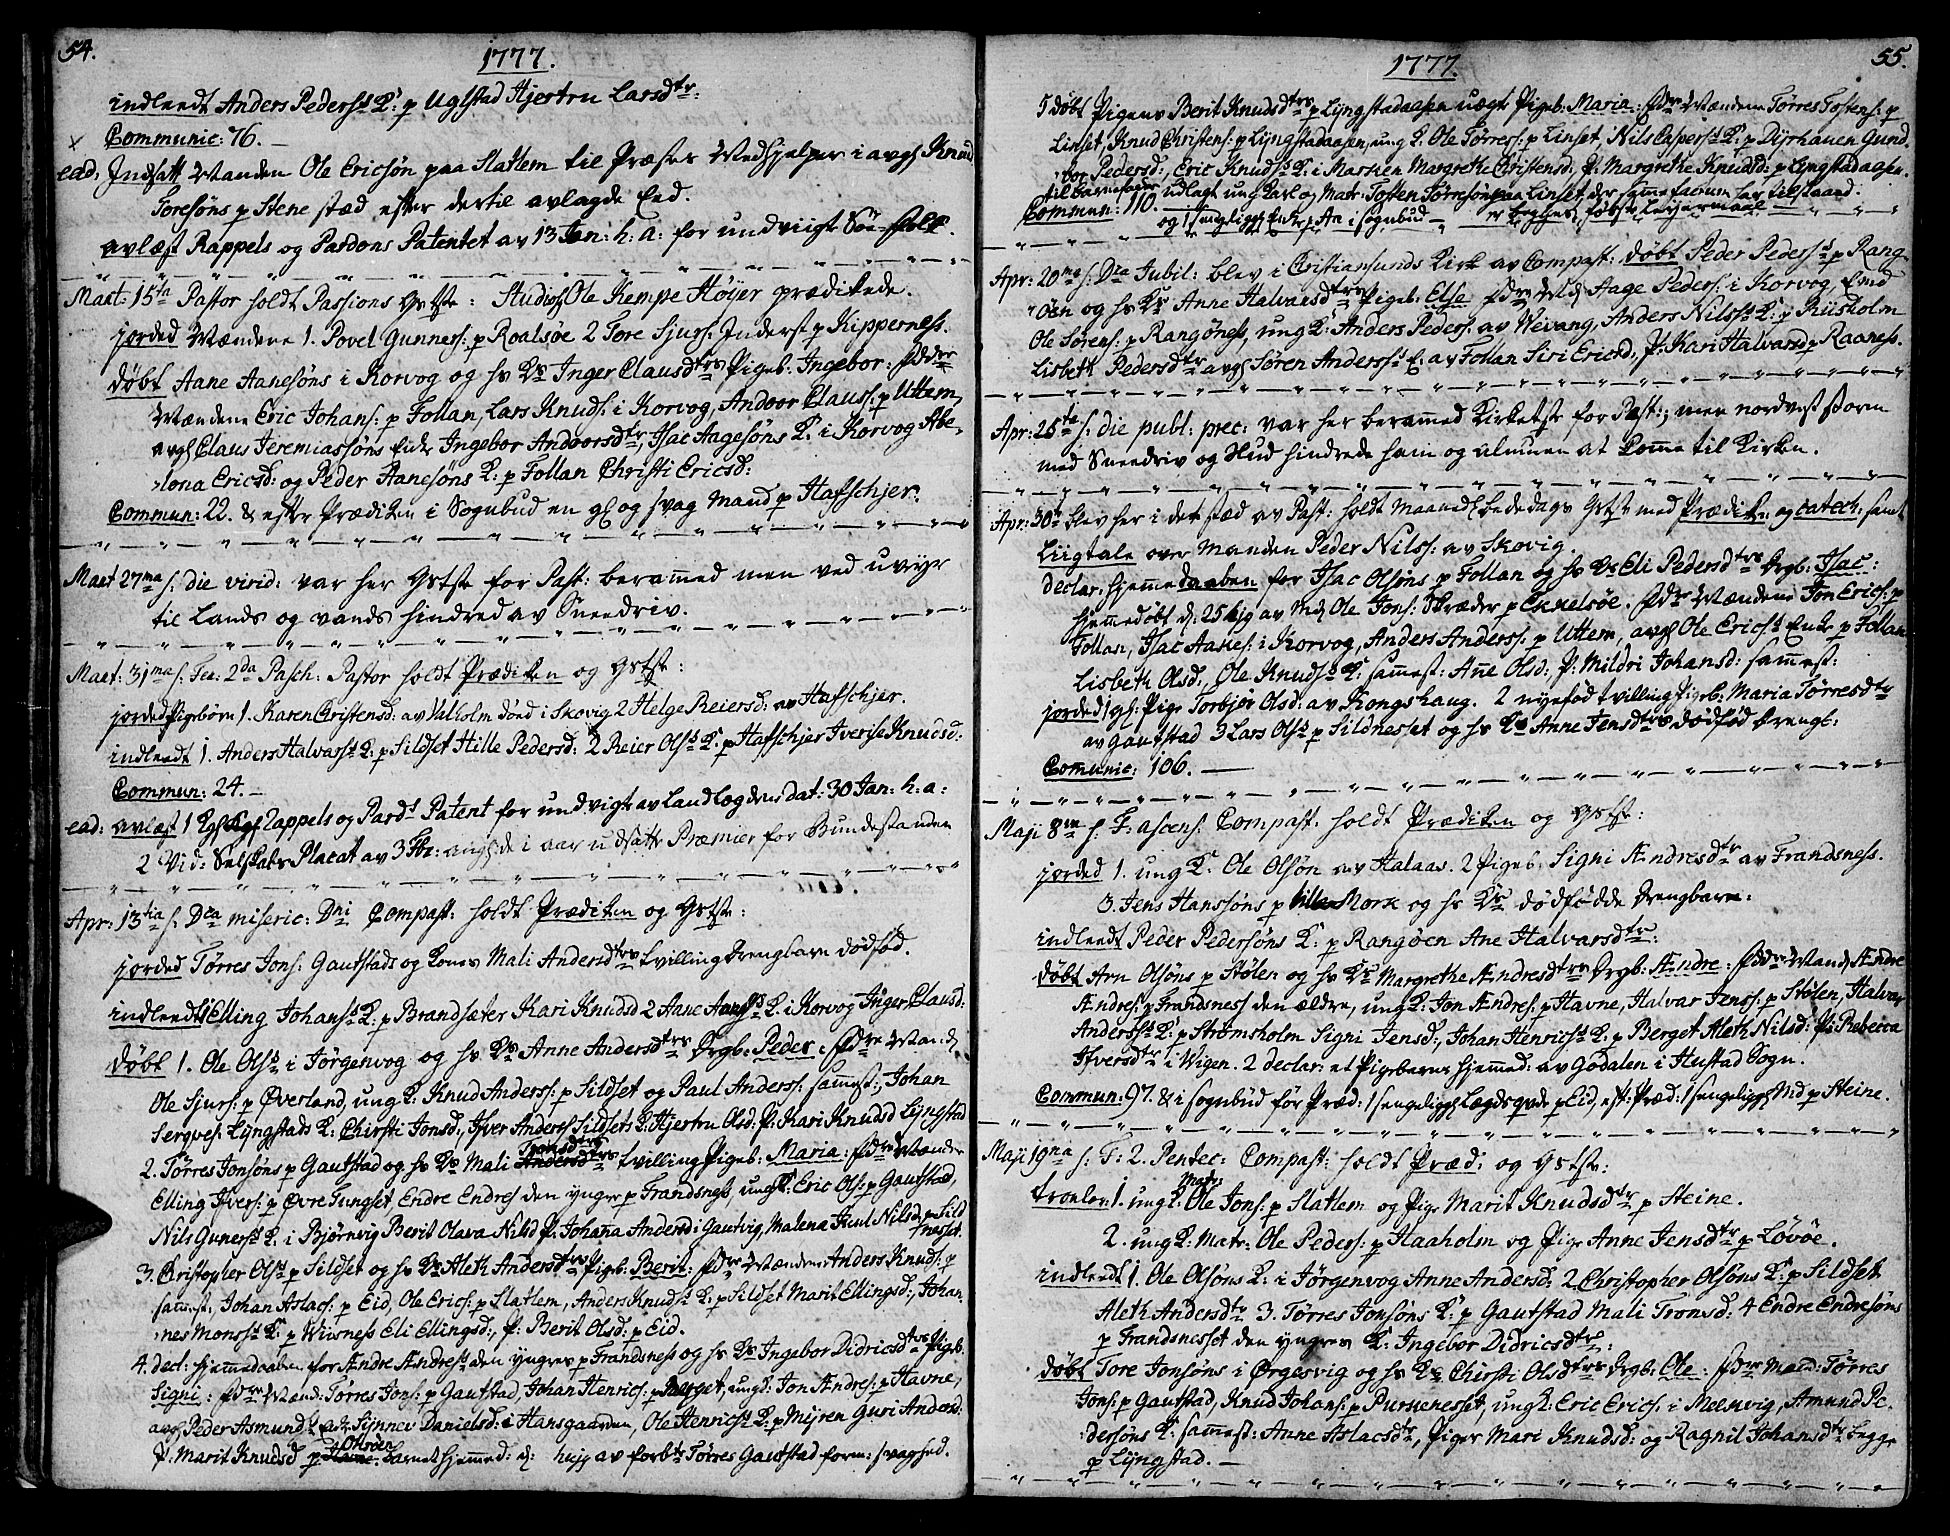 54.
1777.
indleedt Anders Peders: K: p Uglstad Hjestru Larsdtr:
Communic: 76.
ead: Indsatt Manden Ole Ericsøn paa Slatlem til Præstes Medhjelper i avg: Knud
Toresøns p Stene stæd efter dertil avlagde Eed.
avlæst Rappels og Pardons Patentet av 13 Jan: h: a: for undviigte Søe-folk.
Mart: 15ta Pastor holdt Passions Gstste: Studios: Ole Kempe Høyer prædikede.
jorded Mændene 1. Povel Gunners: p Roalsøe 2 Tore Sjurs: Inderst p Kipperness.
døbt Aane Aanesøns i Korvog og hs Ks Inger Clausdtrs Pigeb: Ingebor: Fddre
Mændene Eric Johans: p Follan, Lars Knuds: i Korvog, Andoor Clauss: p Uttem,
avg: Claus Jeremiassøns Enk: Ingebor Andoorsdtr, Isac Aagesøns K: i Korvog Abe-
lona Ericsd: og Peder Aanesøns K: p Follan Christi Ericsd:
Commun: 22. & efter Prædiken i Sognebud en gl: og svag Mand p Hafschjer.
Mart 27ma s: die virid: var her Gstste for Past: beramed men ved uveyr
til Lands og vands hindred av Sneedriv.
Mart: 31ma s: Fer: 2da Pasch: Pastor holdt Prædiken og Gstste:
jorded Pigebørn 1. Karen Christensd: av Valholm død i Skovig 2 Helge Reiersd: av Hafschjer.
indleedt 1. Anders Halvars: K: p Sildset Hille Pedersd: 2 Reier Ols: K: p Hafschjer Iverise Knudsd:
Commun: 24.
ead: avlæst 1 Kgl: Rappels og Pards Patent for undvigte av Landlægden dat: 30 Jan: h: a:
2 Vid: Selskabs Placat av 3 Fbr: ang: de i aar udsatte Præmier for Bundestanden
Apr: 13tia s: Dca miseric: Dni Compast: holdt Prædiken og Gstste:
jorded Tørres Jons: Gautstads og Kones Mali Andersdtrs tvilling Drengbarn dødfød.
indleedt 1 Elling Johans: K: p Brandsæter Kari Knudsd 2 Aane Aanes: K. i Korvog Inger Clausd:
døbt 1. Ole Ols: i Jørgenvog og hs Ks Anne Andersdtrs Drgb: Peder: Fddre Mand:
Ole Sjurs: p Øverland, ung K: Knud Anderss: p Sildset og Paul Anderss: samest:, Johan
Sergves: Lyngstads K: Chirsti Jonsd:, Ifver Anderss: Sildsets K: Hjestru Olsd: P: Kari Knudsd Lyngstad
2. Tørres Jonsøns p Gautstad og hs Ks Mali Tronsdtrs tvilling Pigeb: Maria: Fddre Mænden
Elling Ifvers: p Øvre Tungset, Endre Endres den yngre p Frandsness, ung K: Eric Ols: p Gautstad,
Nils Guners: K: i Bjørnvig Berit Olava Nilsd P: Johanna Andersd: Gautvig, Malena Juul Nilsd: p Sild
nesset.
3. Christopher Ols: p Sildset og hs Ks Aleth Andersdtrs Pigb: Berit: Fddre Mændene Anders Knuds: p
samest:, Johan Aslacs: p Eid, Ole Erics: p Slatlem, Anders Knuds: K: p Sildset Marit Ellingsd:, Johan-
nes Monss: K: p Wiisness Eli Ellingsd:, P: Berit Olsd: p Eid.
4. decl: Hjemmedaaben for Ændre Ændres: den yngres p Frandsness og hs Ks Ingebor Didricsdtrs Pigeb:
Signi: Fddre Mænd: Tørres Jons: p Gautstad, Johan Henrics: p Berget, ung K: Jon Ændres: p Havne,
avg: Peder Asmunds: enk: Synnev Danielsd: i Hansgaarden, Ole Henrics: K: p Myren Guri Andersd:
P: Marit Knudsd p Ottroen Barnet hjemmed: d: hujg av forbte Tørres Gautstad form: svaghed.
1777.
55.
5 døbt Pigens Berit Knudsdtrs p Lyngstadaasen uægte Pigeb: Maria: Fddre Mændene Tørres Tostens: p
Linset, Knud Christens: p Lyngstadaasen, ung K: Ole Tørress: p Linset, Nils Caspers: K: p Dyrhauen Gund.
bor Pedersd:, Eric Knuds: K: i Marstein Margrethe Christensd:, P: Margrethe Knudsd: p Lyngstadaasen.
til Barnefader udlagt ung Karl og Matr: Tosten Tørresøn paa Linset der samme factum har tilstaaed.
Commun: 110.
og 1 sengligg: Enke p Aa i sognbud er begges første Leyermaal
Apr: 20ma s: Dca Jubil: blev i Christiansunds Kirk av Compast: døbt Peder Peders: p Rang-
øen og hs Ks Anne Halvarsdtrs Pigeb: Else Fddre Md: Aage Peders: i Korvog, Emd
Ole Sørens: p Rangøness, ung K: Anders Peders: av Wevang, Anders Nils: K: p Riisholm
Lisbeth Pedersdtr avg: Søren Anders: E. av Follan Siri Ericsd:, P: Kari Halvarsd p Raaness.
Apr: 25te s: die publ: prec: var her beramed Kirketste for Past:, men nordvest storm
med Sneedriv og Slud hindrede ham og almuen at komme til Kirken.
Apr: 30te blev her i det stæd av Past: holdt Maanedl: Bededags Gstste med Prædiken og catech: samt
Liigtale over Manden Peder Nilss: av Skovig.
declar: hjemmedaaben for Isac Olsøns p Follan og hs Ks Eli Pedersdtrs Drgb: Isac:
hjemmedøbt d: 25 hjg av Md: Ole Jons: Skræder p Ekkelsøe. Fddre Mændene Jon Erics: p
Follan, Isac Aanes: i Korvog, Anders Anderss: p Uttem, avg: Ole Erics: Enke p Follan
Lisbeth Olsd:, Ole Knuds: K: samest: Ane Olsd: P: Mildri Johansd: samest:
jorded 1 gl: Pige Torbjør Olsd: av Kongshaug. 2 nyefød tvilling Pigeb: Maria Tørresdtr
av Gautstad 3 Lars Ols: p Sildnesset og hs Ks Anne Jensdtrs dødfød Drengb:
Comunic: 106.
Maji 8va s: F: ascens: Compast. holdt Prædiken og Gstste:
jorded 1. ung K: Ole Olsøn av Halaas. 2 Pigeb: Signi Ændresdtr av Frandsness.
3. Jens Hanssøns p lille Mork og hs Ks dødfødde Drengbarn:
indleedt Peder Pedersøns K: p Rangøen Ane Halvarsdtr:
døbt Arn Olsøns p Stølen og hs Ks Margrethe Ændresdtrs Drgb: Ændre: Fddre Mand: Ændre
Ændres: p Frandsness den ældre, ung K: Jon Ændres: p Havne, Halvar Jenss: p Stølen, Halvar
Anderss: K: p Strømsholm Signi Jensd:, Johan Henrics: K: p Berget Aleth Nilsd: P: Rebecca
Ifversdtr i Wigen. 2 declar: et Pigebarns hjemmed: av Godalen i Hustad Sogn.
Commun: 97. & i sognbud før Præd: 1 sengeligg: Lægdsqvde p Eid, eft: Præd: 1 sengeligg: Md p Steine.
Maji 19na s: F: 2. Pentec: Compast: holdt Præd: og Gstste:
trolov: 1. ung K: Matr: Ole Jons: p Slatlem og Pige Marit Knudsdtr p Steine.
2. ung K: Matr: Ole Peders: p Haaholm og Pige Anne Jensdtr p Løvøe.
indleedt 1. Ole Olsøns K: i Jørgenvog Anne Andersd: 2 Christopher Olsøns K: p Sildset
Aleth Andersdtr 3. Tørres Jonsøns K: p Gautstad Mali Tronsd: 4 Endre Endresøns
p Frandsnesset den yngres K: Ingebor Didricsdtr:
døbt Tore Jonsøns i Ørgesvig og hs Ks Chirsti Olsdtrs Drgb: Ole: Fddre Mænd: Tørres
Jons: p Gautstad, Knud Johans: p Pursvenesset, ung K: Eric Erics: i Meenvig, Amund Pe-
dersøns K: samest: Anne Aslacsdtr, Piger Mari Knudsd: og Ragnil Johansdtr begge
p Lyngstad.